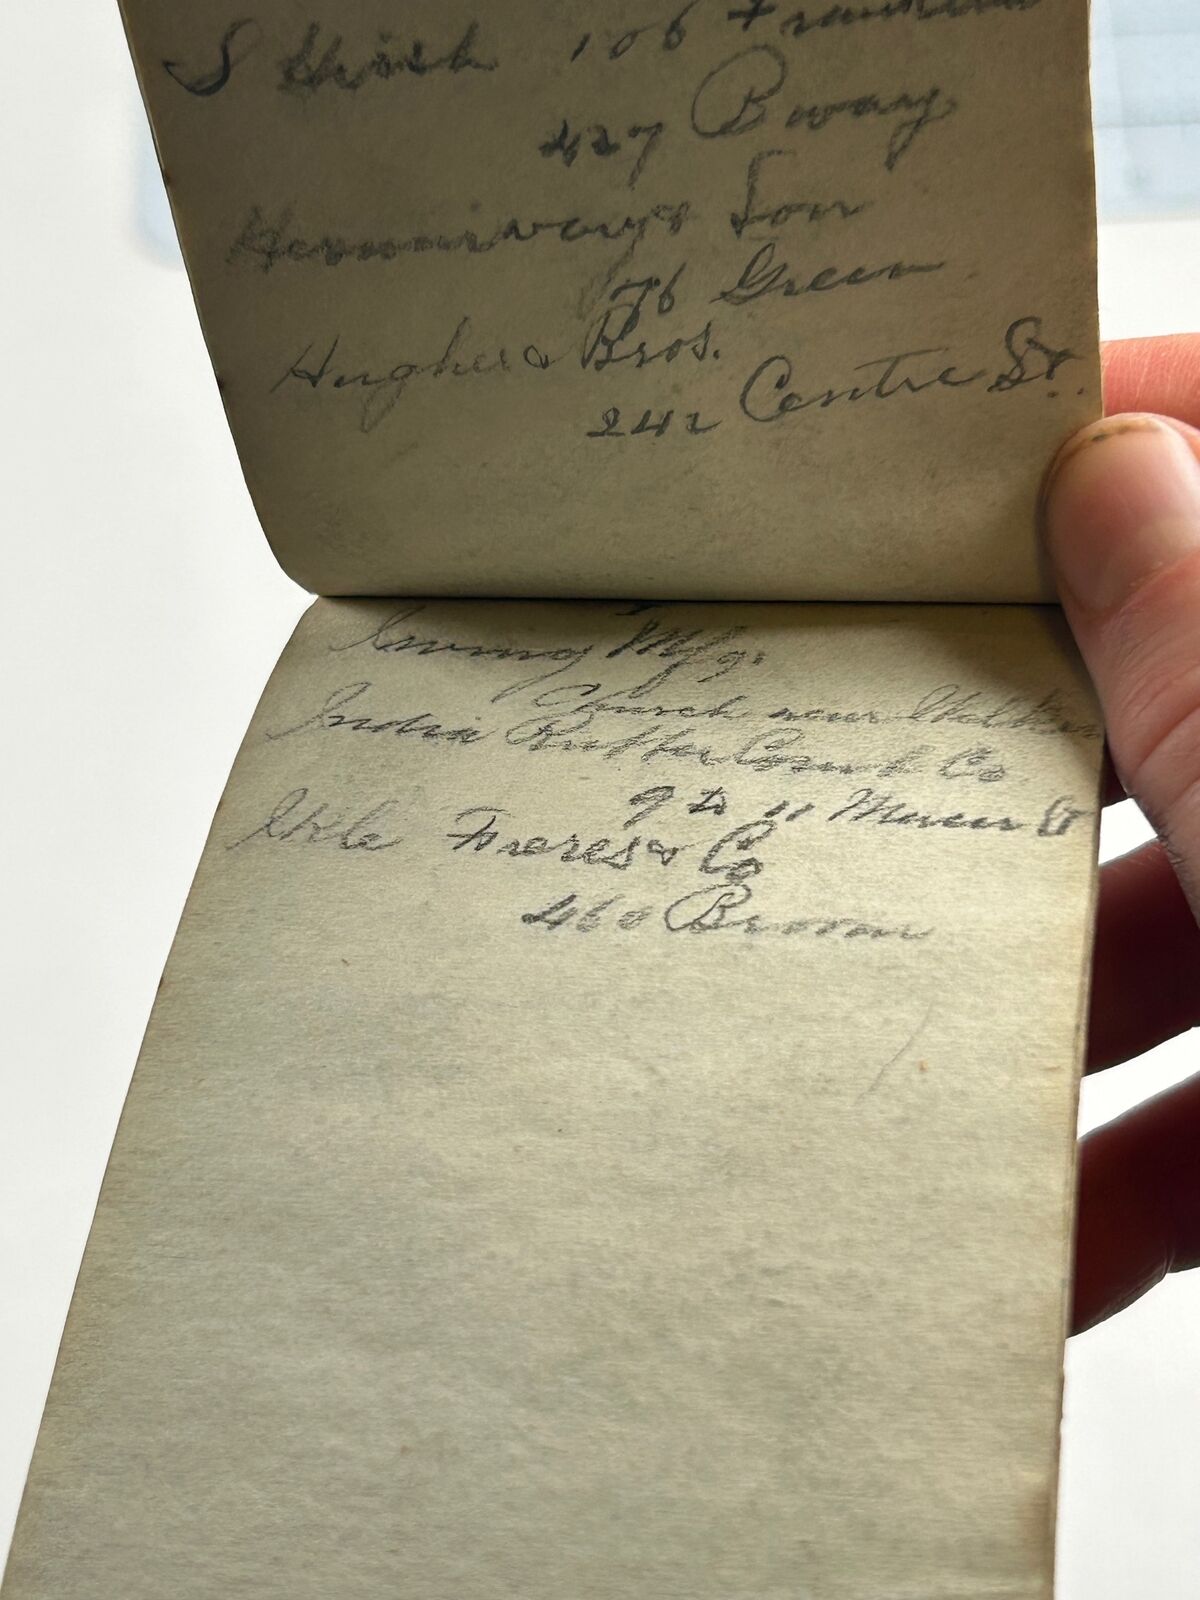 S Hirsh 106 Franklin
427 Bway
Hemminway & Son
76 Green
Hughes & Bros.
242 Centre St.
Irving Mfg.
Church near
India Rubber Comb Co
9 to 11 Mercer
Ikle Freres & Co
460 Broom